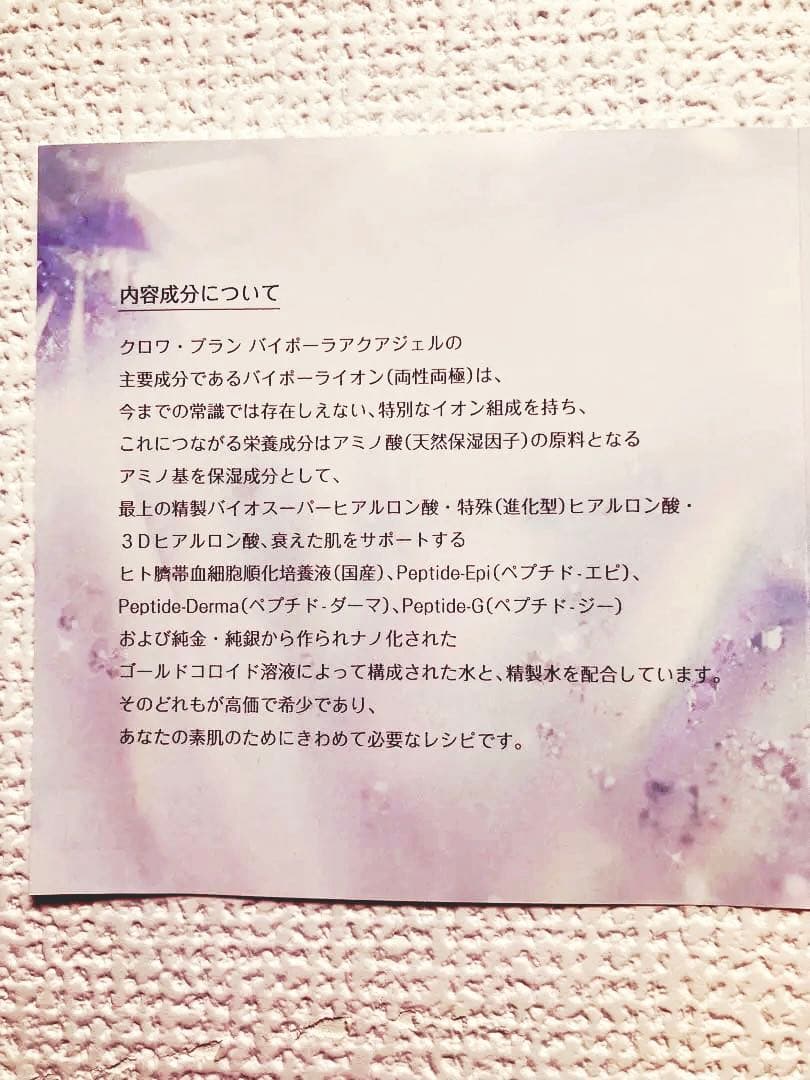 内容成分について
クロワ・ブラン バイポーラアクアジェルの
主要成分であるバイポーライオン(両性両極)は、
今までの常識では存在しえない、特別なイオン組成を持ち、
これにつながる栄養成分はアミノ酸(天然保湿因子)の原料となる
アミノ基を保湿成分として、
最上の精製バイオスーパーヒアルロン酸・特殊(進化型)ヒアルロン酸・
3Dヒアルロン酸、衰えた肌をサポートする
ヒト臍帯血細胞順化培養液(国産)、Peptide-Epi(ペプチド-エピ)、
Peptide-Derma(ペプチド-ダーマ)、Peptide-G(ペプチド-ジー)
および純金・純銀から作られナノ化された
ゴールドコロイド溶液によって構成された水と、精製水を配合しています。
そのどれもが高価で希少であり、
あなたの素肌のためにきわめて必要なレシピです。